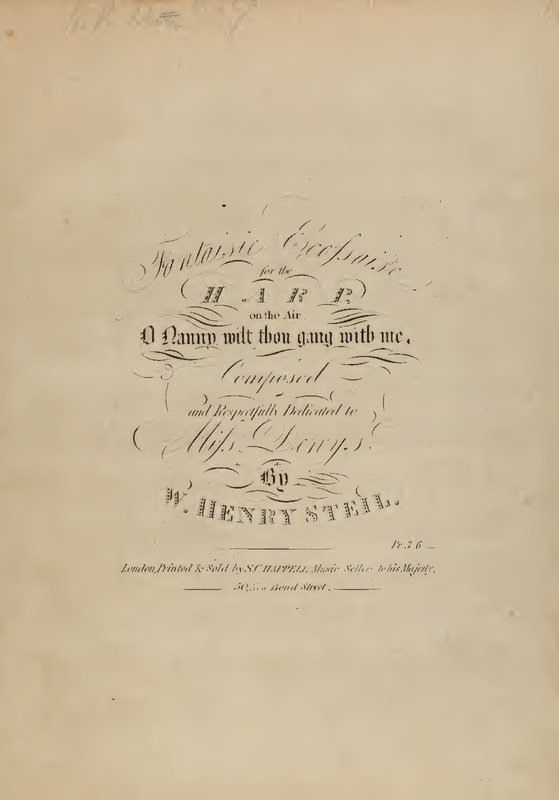 Fantaisie Ecoſsaise
for the
HARP,
on the Air
O Nanny wilt thou gang with me,
Composed
and Respectfully Dedicated to
Miſs Denys.
By
W. HENRY STEIL.
Pr. 3/6
London, Printed & Sold by S. CHAPPELL, Music Seller to his Majesty,
50, New Bond Street.